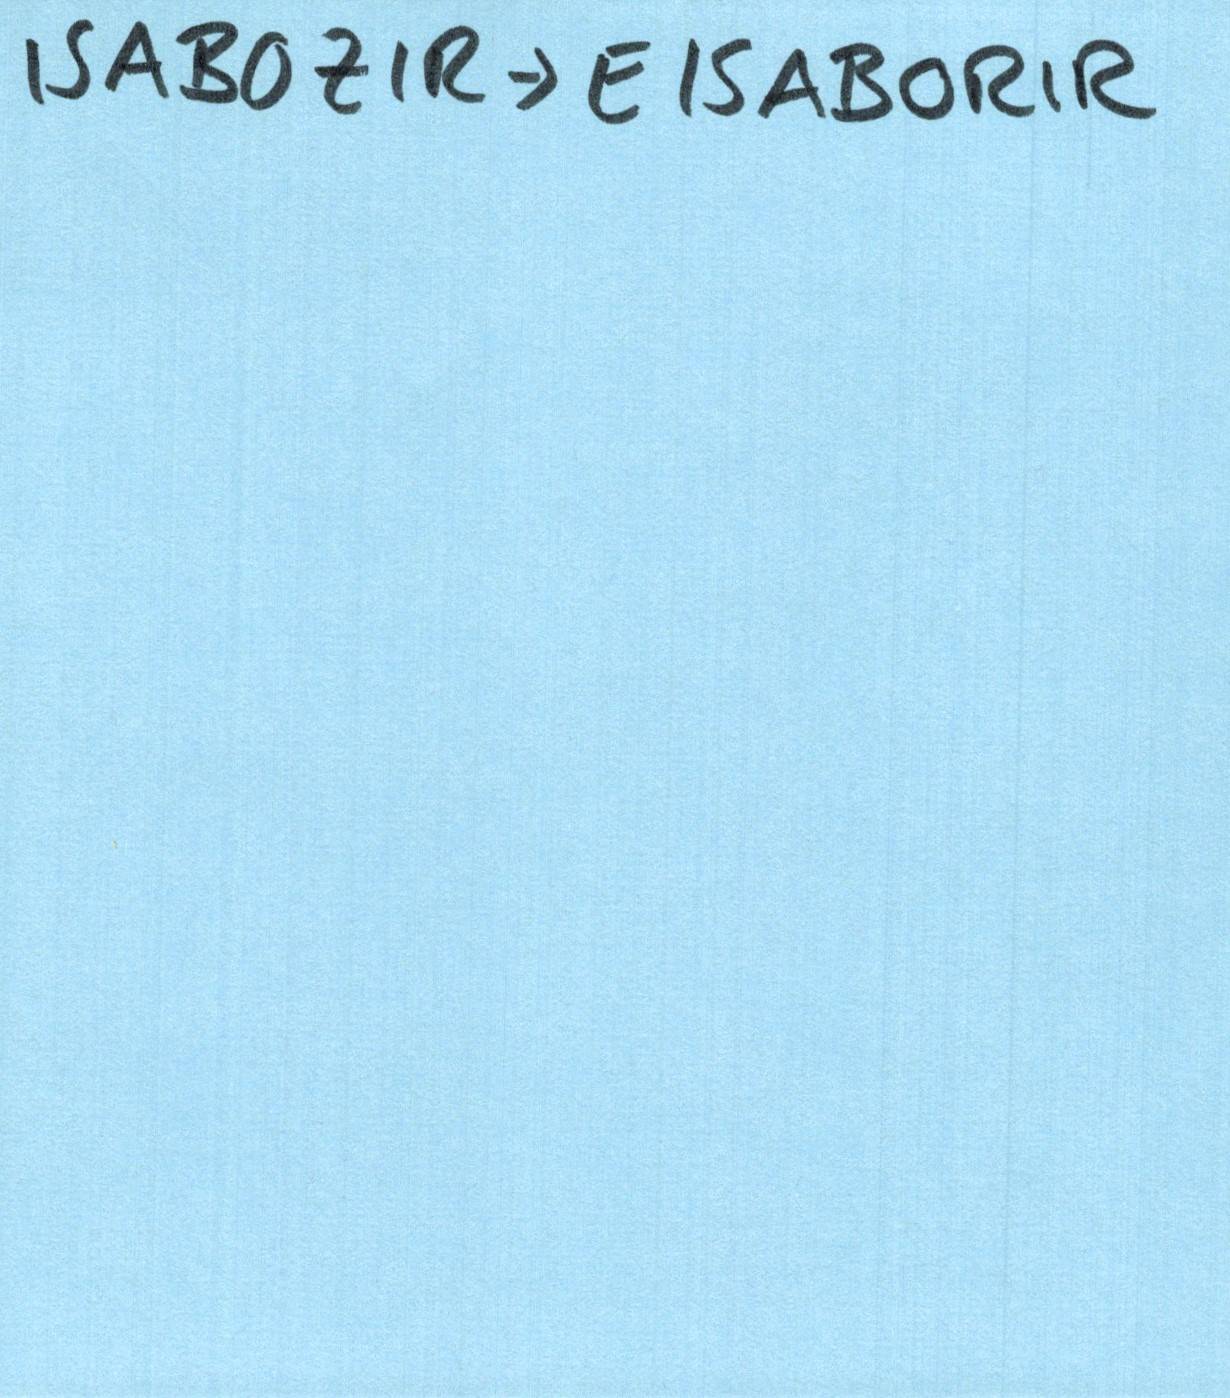 ISABOZIR → EISABORIR